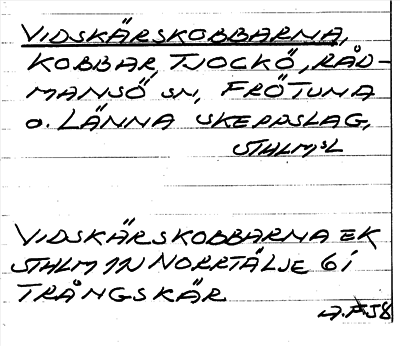 VIDSKÄRSKOBBARNA,
KOBBAR, TJOCKÖ, RÅD-
MANSÖ SN, FRÖTUNA
O. LÄNNA SKEPPSLAG,
STHLMSL
VIDSKÄRSKOBBARNA EK
STHLM 1N NORRTÄLJE 6 i
TRÅNGSKÄR